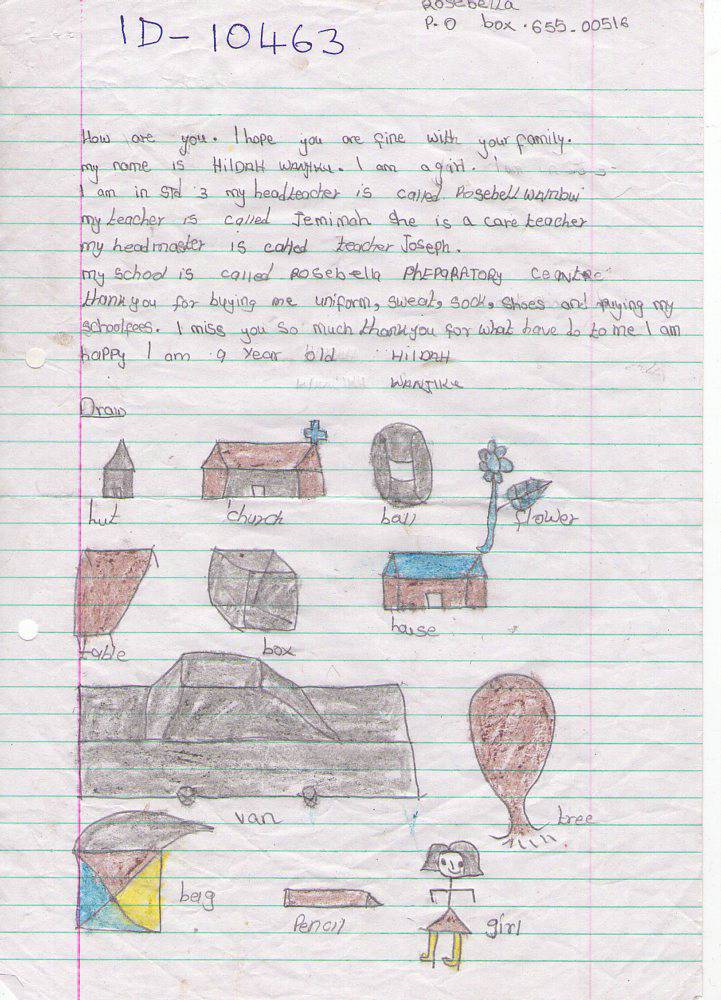 Rosebella
P.O box .655.00516
ID-10463
How are you. I hope you are fine with your family.
my name is HilDAH WANJIKU. I am a girl.
I am in Std 3 my headteacher is called Rosebell wambui
my teacher is called Jemimah she is a care teacher
my headmaster is called teacher Joseph.
my school is called ROSEbella PREPARATORY CEANTRE
thankyou for buying me uniform, sweat, sock, shoes and puying my
schoolfees. I miss you so much thankyou for what have do to me I am
happy I am 9 year old HilDAH
WANJIKU
Draw
hut church ball flower
table box house
van tree
beg Pencil girl